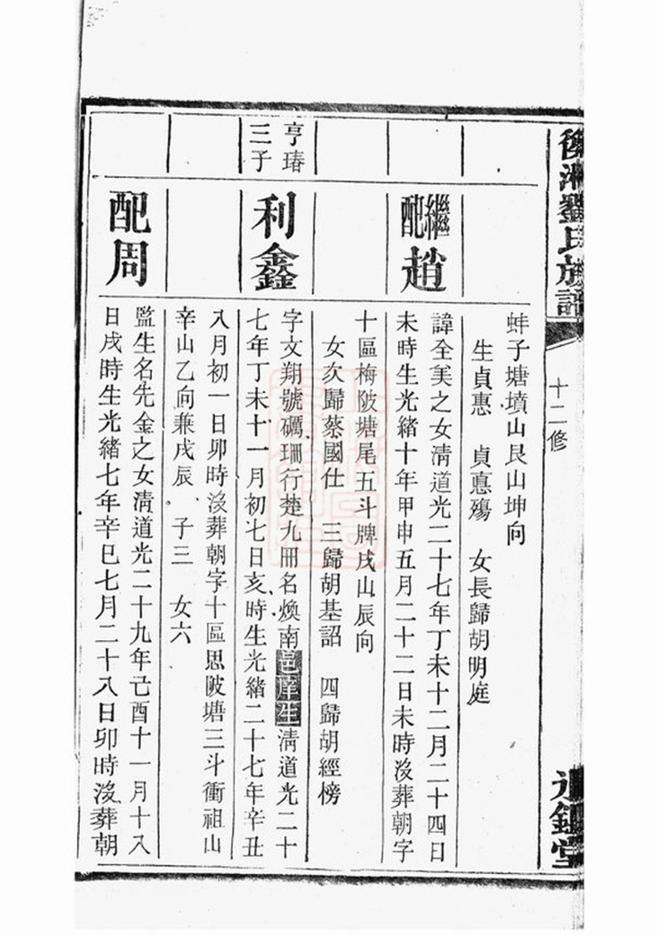 劉氏族譜
十二修
蚌子塘墳山艮山坤向
生貞惠　貞惪殤　女長歸胡明庭
繼配趙
諱全美之女清道光二十七年丁未十二月二十四日
未時生光緒十年甲申五月二十二日未時沒葬朝字
十區梅陂塘尾五斗牌戌山辰向
女次歸蔡國仕　三歸胡基詔　四歸胡經榜
亨瑃三子
利鑫
字文翔號礪珊行楚九冊名煥南邑庠生清道光二十
七年丁未十一月初七日亥時生光緒二十七年辛丑
八月初一日卯時沒葬朝字十區思陂塘三斗衝祖山
辛山乙向兼戌辰　子三　女六
配周
監生名先金之女清道光二十九年己酉十一月十八
日戌時生光緒七年辛巳七月二十八日卯時沒葬朝